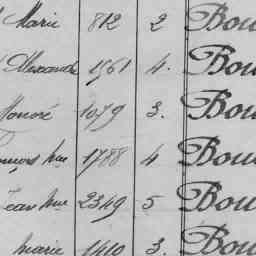 Marie 812 2 Bou
Alexandre 1561 4. Bou
Honoré 1079 3. Bou
1788 4 Bou
Jean 2349 5 Bou
Marie 1410 3. Bou